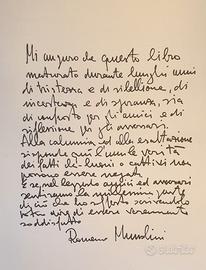 Mi auguro che questo libro
maturato durante lunghi anni
di tristezza e di riflessione, di
incertezza e di speranza, sia
di conforto per gli amici e di
riflessione per gli avversari.
Alla calunnia ed alla esaltazione
risponde con l'umile verità
dei fatti che buoni o cattivi non
possono essere negati
E se nel leggerlo amici ed avversari
sentiranno
ciò che ho sofferto scrivendolo
di essere veramente
soddisfatto
Romano Mussolini
Subito